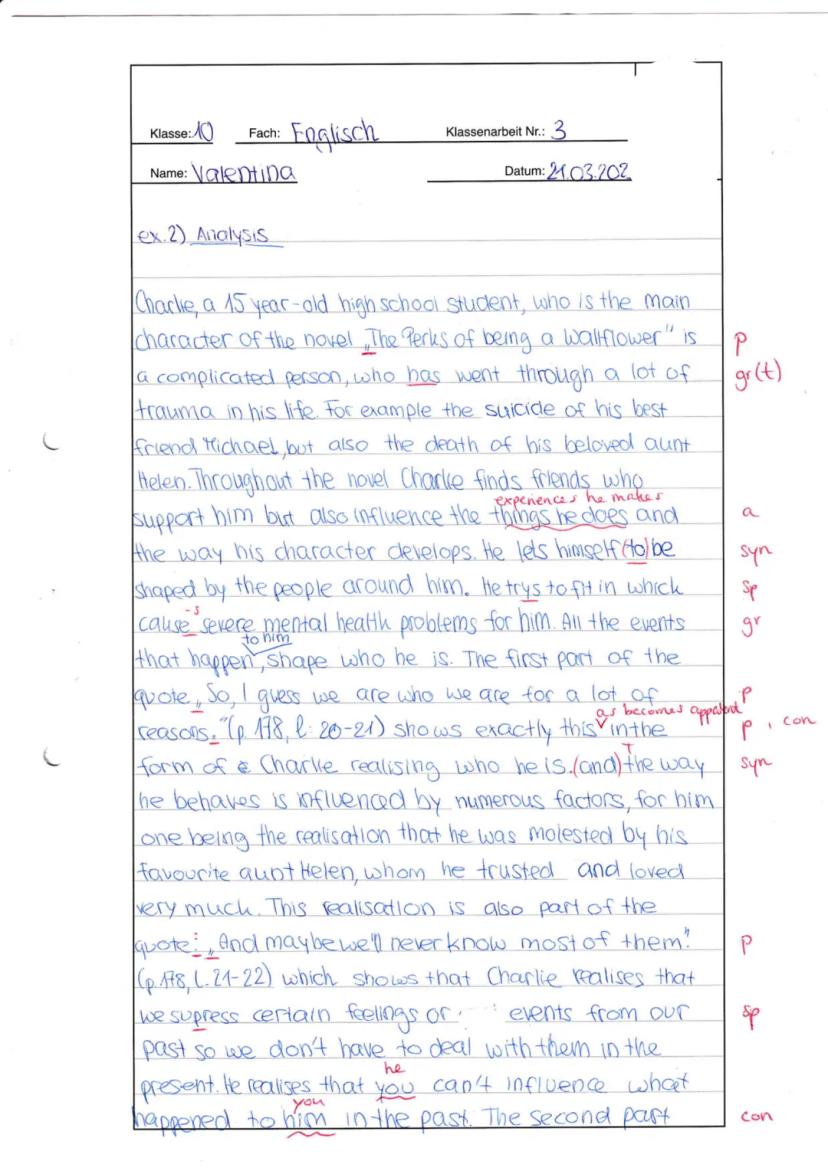 Klasse: 10 Fach: Englisch Klassenarbeit Nr.: 3
Name: Valentina Datum: 21.03.202
ex. 2) Analysis
Charlie, a 15 year-old high school student, who is the main
character of the novel „The Perks of being a Wallflower" is p
a complicated person, who has went through a lot of gr(t)
trauma in his life. For example the suicide of his best
friend Michael, but also the death of his beloved aunt
Helen. Throughout the novel Charlie finds friends who
experiences he makes
support him but also influence the things he does and a
the way his character develops. He lets himself (to) be syn
shaped by the people around him. He trys to fit in which sp
-s
cause severe mental health problems for him. All the events gr
to him
that happen, shape who he is. The first part of the
quote „So, I guess we are who we are for a lot of p
as becomes apparent
reasons." (p. 178, l. 20-21) shows exactly this in the p, con
form of Charlie realising who he is. (and) T the way syn
he behaves is influenced by numerous factors, for him
one being the realisation that he was molested by his
favourite aunt Helen, whom he trusted and loved
very much. This realisation is also part of the
quote: „And maybe we'll never know most of them." p
(p. 178, l. 21-22) which shows that Charlie realises that
we supress certain feelings or events from our sp
past so we don't have to deal with them in the
he
present. He realises that you can't influence what
you
happened to him in the past. The second part con